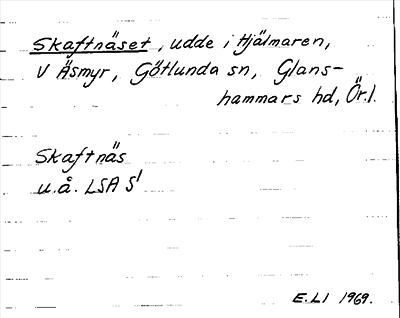 Skaftnäset, udde i Hjälmaren,
V Äsmyr, Götlunda sn, Glans-
hammars hd, Ör.l.
Skaftnäs
u.å. LSA S1
E.LI 1969.